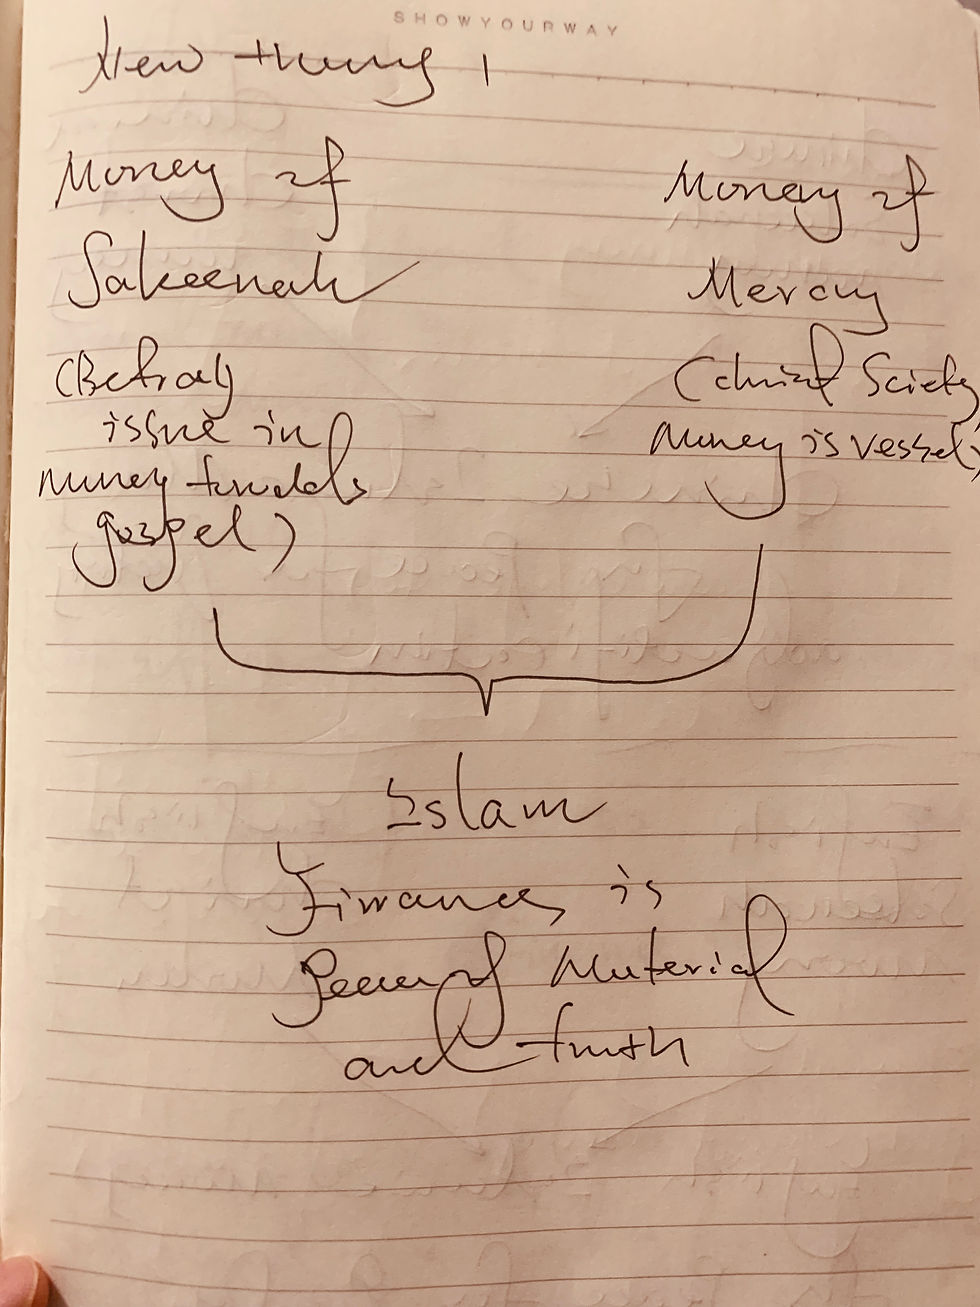 SHOWYOURWAY
New thing 1
Money of
Sakeenah
(Betray
issue in
money
gospel)
Money of
Mercy
Society
money is vessel)
Islam
Finance is
Material
and